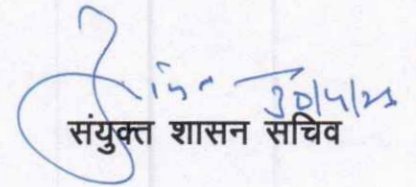 30/4/23
संयुक्त शासन सचिव